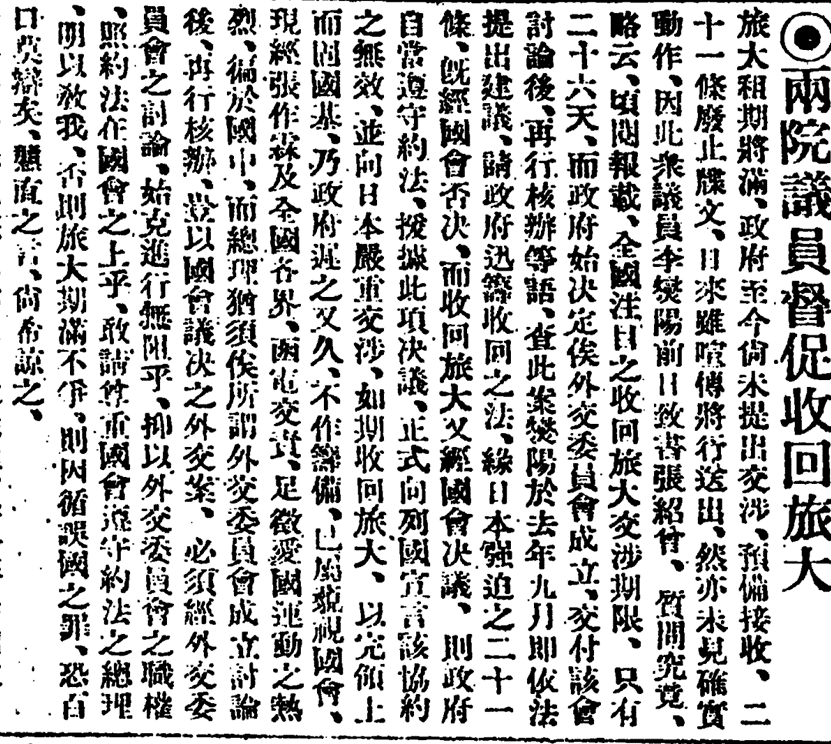 ◉兩院議員督促收回旅大
旅大租期將滿、政府至今尙未提出交涉、預備接收、二
十一條廢止牒文、日來雖喧傳將行送出、然亦未見確實
動作、因此衆議員李燮陽前日致書張紹曾、質問究竟、
略云、頃閱報載、全國注目之收回旅大交涉期限、只有
二十六天、而政府始決定俟外交委員會成立、交付該會
討論後、再行核辦等語、查此案燮陽於去年九月卽依法
提出建議、請政府迅籌收回之法、緣日本強迫之二十一
條、旣經國會否決、而收回旅大又經國會決議、則政府
自當遵守約法、援據此項決議、正式向列國宣言該協約
之無效、並向日本嚴重交涉、如期收回旅大、以完領土
而固國基、乃政府遲之又久、不作籌備、已屬藐視國會、
現經張作霖及全國各界、函電交責、足徵愛國運動之熱
烈、徧於國中、而總理猶須俟所謂外交委員會成立討論
後、再行核辦、豈以國會議決之外交案、必須經外交委
員會之討論、始克進行無阻乎、抑以外交委員會之職權
、照約法在國會之上乎、敢請尊重國會遵守約法之總理
、明以敎我、否則旅大期滿不爭、則因循誤國之罪、恐百
口莫辯矣、戇直之言、尙希諒之、